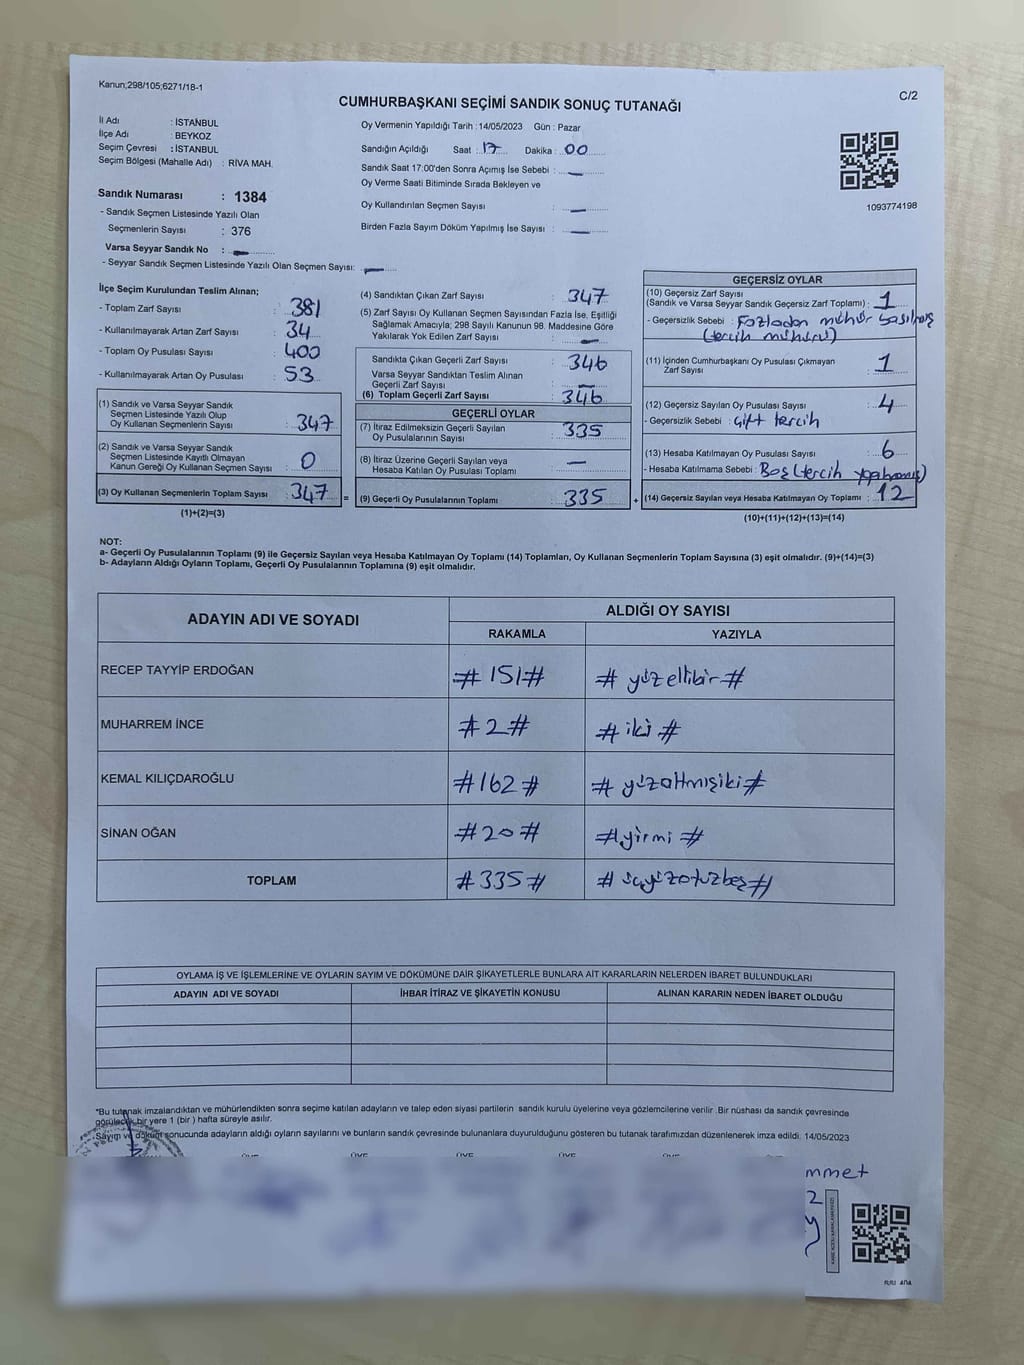 Kanun;298/105;6271/18-1
C/2
CUMHURBAŞKANI SEÇİMİ SANDIK SONUÇ TUTANAĞI
İl Adı : İSTANBUL
İlçe Adı : BEYKOZ
Seçim Çevresi : İSTANBUL
Seçim Bölgesi (Mahalle Adı) : RİVA MAH.
Sandık Numarası : 1384
- Sandık Seçmen Listesinde Yazılı Olan
Seçmenlerin Sayısı : 376
Varsa Seyyar Sandık No : -
- Seyyar Sandık Seçmen Listesinde Yazılı Olan Seçmen Sayısı: -
Oy Vermenin Yapıldığı Tarih : 14/05/2023 Gün : Pazar
Sandığın Açıldığı Saat : 17 Dakika : 00
Sandık Saat 17:00'den Sonra Açımış İse Sebebi : -
Oy Verme Saati Bitiminde Sırada Bekleyen ve
Oy Kullandırılan Seçmen Sayısı : -
Birden Fazla Sayım Döküm Yapılmış İse Sayısı : -
1093774198
İlçe Seçim Kurulundan Teslim Alınan;
- Toplam Zarf Sayısı : 381
- Kullanılmayarak Artan Zarf Sayısı : 34
- Toplam Oy Pusulası Sayısı : 400
- Kullanılmayarak Artan Oy Pusulası : 53
(1) Sandık ve Varsa Seyyar Sandık
Seçmen Listesinde Yazılı Olup
Oy Kullanan Seçmenlerin Sayısı : 347
(2) Sandık ve Varsa Seyyar Sandık
Seçmen Listesinde Kayıtlı Olmayan
Kanun Gereği Oy Kullanan Seçmen Sayısı : 0
(3) Oy Kullanan Seçmenlerin Toplam Sayısı : 347
(1)+(2)=(3)
(4) Sandıktan Çıkan Zarf Sayısı : 347
(5) Zarf Sayısı Oy Kullanan Seçmen Sayısından Fazla İse, Eşitliği
Sağlamak Amacıyla; 298 Sayılı Kanunun 98. Maddesine Göre
Yakılarak Yok Edilen Zarf Sayısı : -
Sandıkta Çıkan Geçerli Zarf Sayısı : 346
Varsa Seyyar Sandıktan Teslim Alınan
Geçerli Zarf Sayısı : -
(6) Toplam Geçerli Zarf Sayısı : 346
GEÇERLİ OYLAR
(7) İtiraz Edilmeksizin Geçerli Sayılan
Oy Pusulalarının Sayısı : 335
(8) İtiraz Üzerine Geçerli Sayılan veya
Hesaba Katılan Oy Pusulası Toplamı : -
= (9) Geçerli Oy Pusulalarının Toplamı : 335
GEÇERSİZ OYLAR
(10) Geçersiz Zarf Sayısı
(Sandık ve Varsa Seyyar Sandık Geçersiz Zarf Toplamı) : 1
- Geçersizlik Sebebi : Fazladan mühür basılmış
(tercih mühürü)
(11) İçinden Cumhurbaşkanı Oy Pusulası Çıkmayan
Zarf Sayısı : 1
(12) Geçersiz Sayılan Oy Pusulası Sayısı : 4
- Geçersizlik Sebebi : Çift tercih
(13) Hesaba Katılmayan Oy Pusulası Sayısı : 6
- Hesaba Katılmama Sebebi : Boş(tercih yapılmamış)
+ (14) Geçersiz Sayılan veya Hesaba Katılmayan Oy Toplamı : 12
(10)+(11)+(12)+(13)=(14)
NOT:
a- Geçerli Oy Pusulalarının Toplamı (9) ile Geçersiz Sayılan veya Hesaba Katılmayan Oy Toplamı (14) Toplamları, Oy Kullanan Seçmenlerin Toplam Sayısına (3) eşit olmalıdır. (9)+(14)=(3)
b- Adayların Aldığı Oyların Toplamı, Geçerli Oy Pusulalarının Toplamına (9) eşit olmalıdır.
ADAYIN ADI VE SOYADI ALDIĞI OY SAYISI
RAKAMLA YAZIYLA
RECEP TAYYİP ERDOĞAN #151# #yüzellibir#
MUHARREM İNCE #2# #iki#
KEMAL KILIÇDAROĞLU #162# #yüzaltmışiki#
SİNAN OĞAN #20# #yirmi#
TOPLAM #335# #üçyüzotuzbeş#
OYLAMA İŞ VE İŞLEMLERİNE VE OYLARIN SAYIM VE DÖKÜMÜNE DAİR ŞİKAYETLERLE BUNLARA AİT KARARLARIN NELERDEN İBARET BULUNDUKLARI
ADAYIN ADI VE SOYADI İHBAR İTİRAZ VE ŞİKAYETİN KONUSU ALINAN KARARIN NEDEN İBARET OLDUĞU
*Bu tutanak imzalandıktan ve mühürlendikten sonra seçime katılan adayların ve talep eden siyasi partilerin sandık kurulu üyelerine veya gözlemcilerine verilir .Bir nüshası da sandık çevresinde
görülecek bir yere 1 (bir ) hafta süreyle asılır.
Sayım ve döküm sonucunda adayların aldığı oyların sayılarını ve bunların sandık çevresinde bulunanlara duyurulduğunu gösteren bu tutanak tarafımızdan düzenlenerek imza edildi. 14/05/2023
ÜYE ÜYE ÜYE ÜYE ÜYE
mmet
2